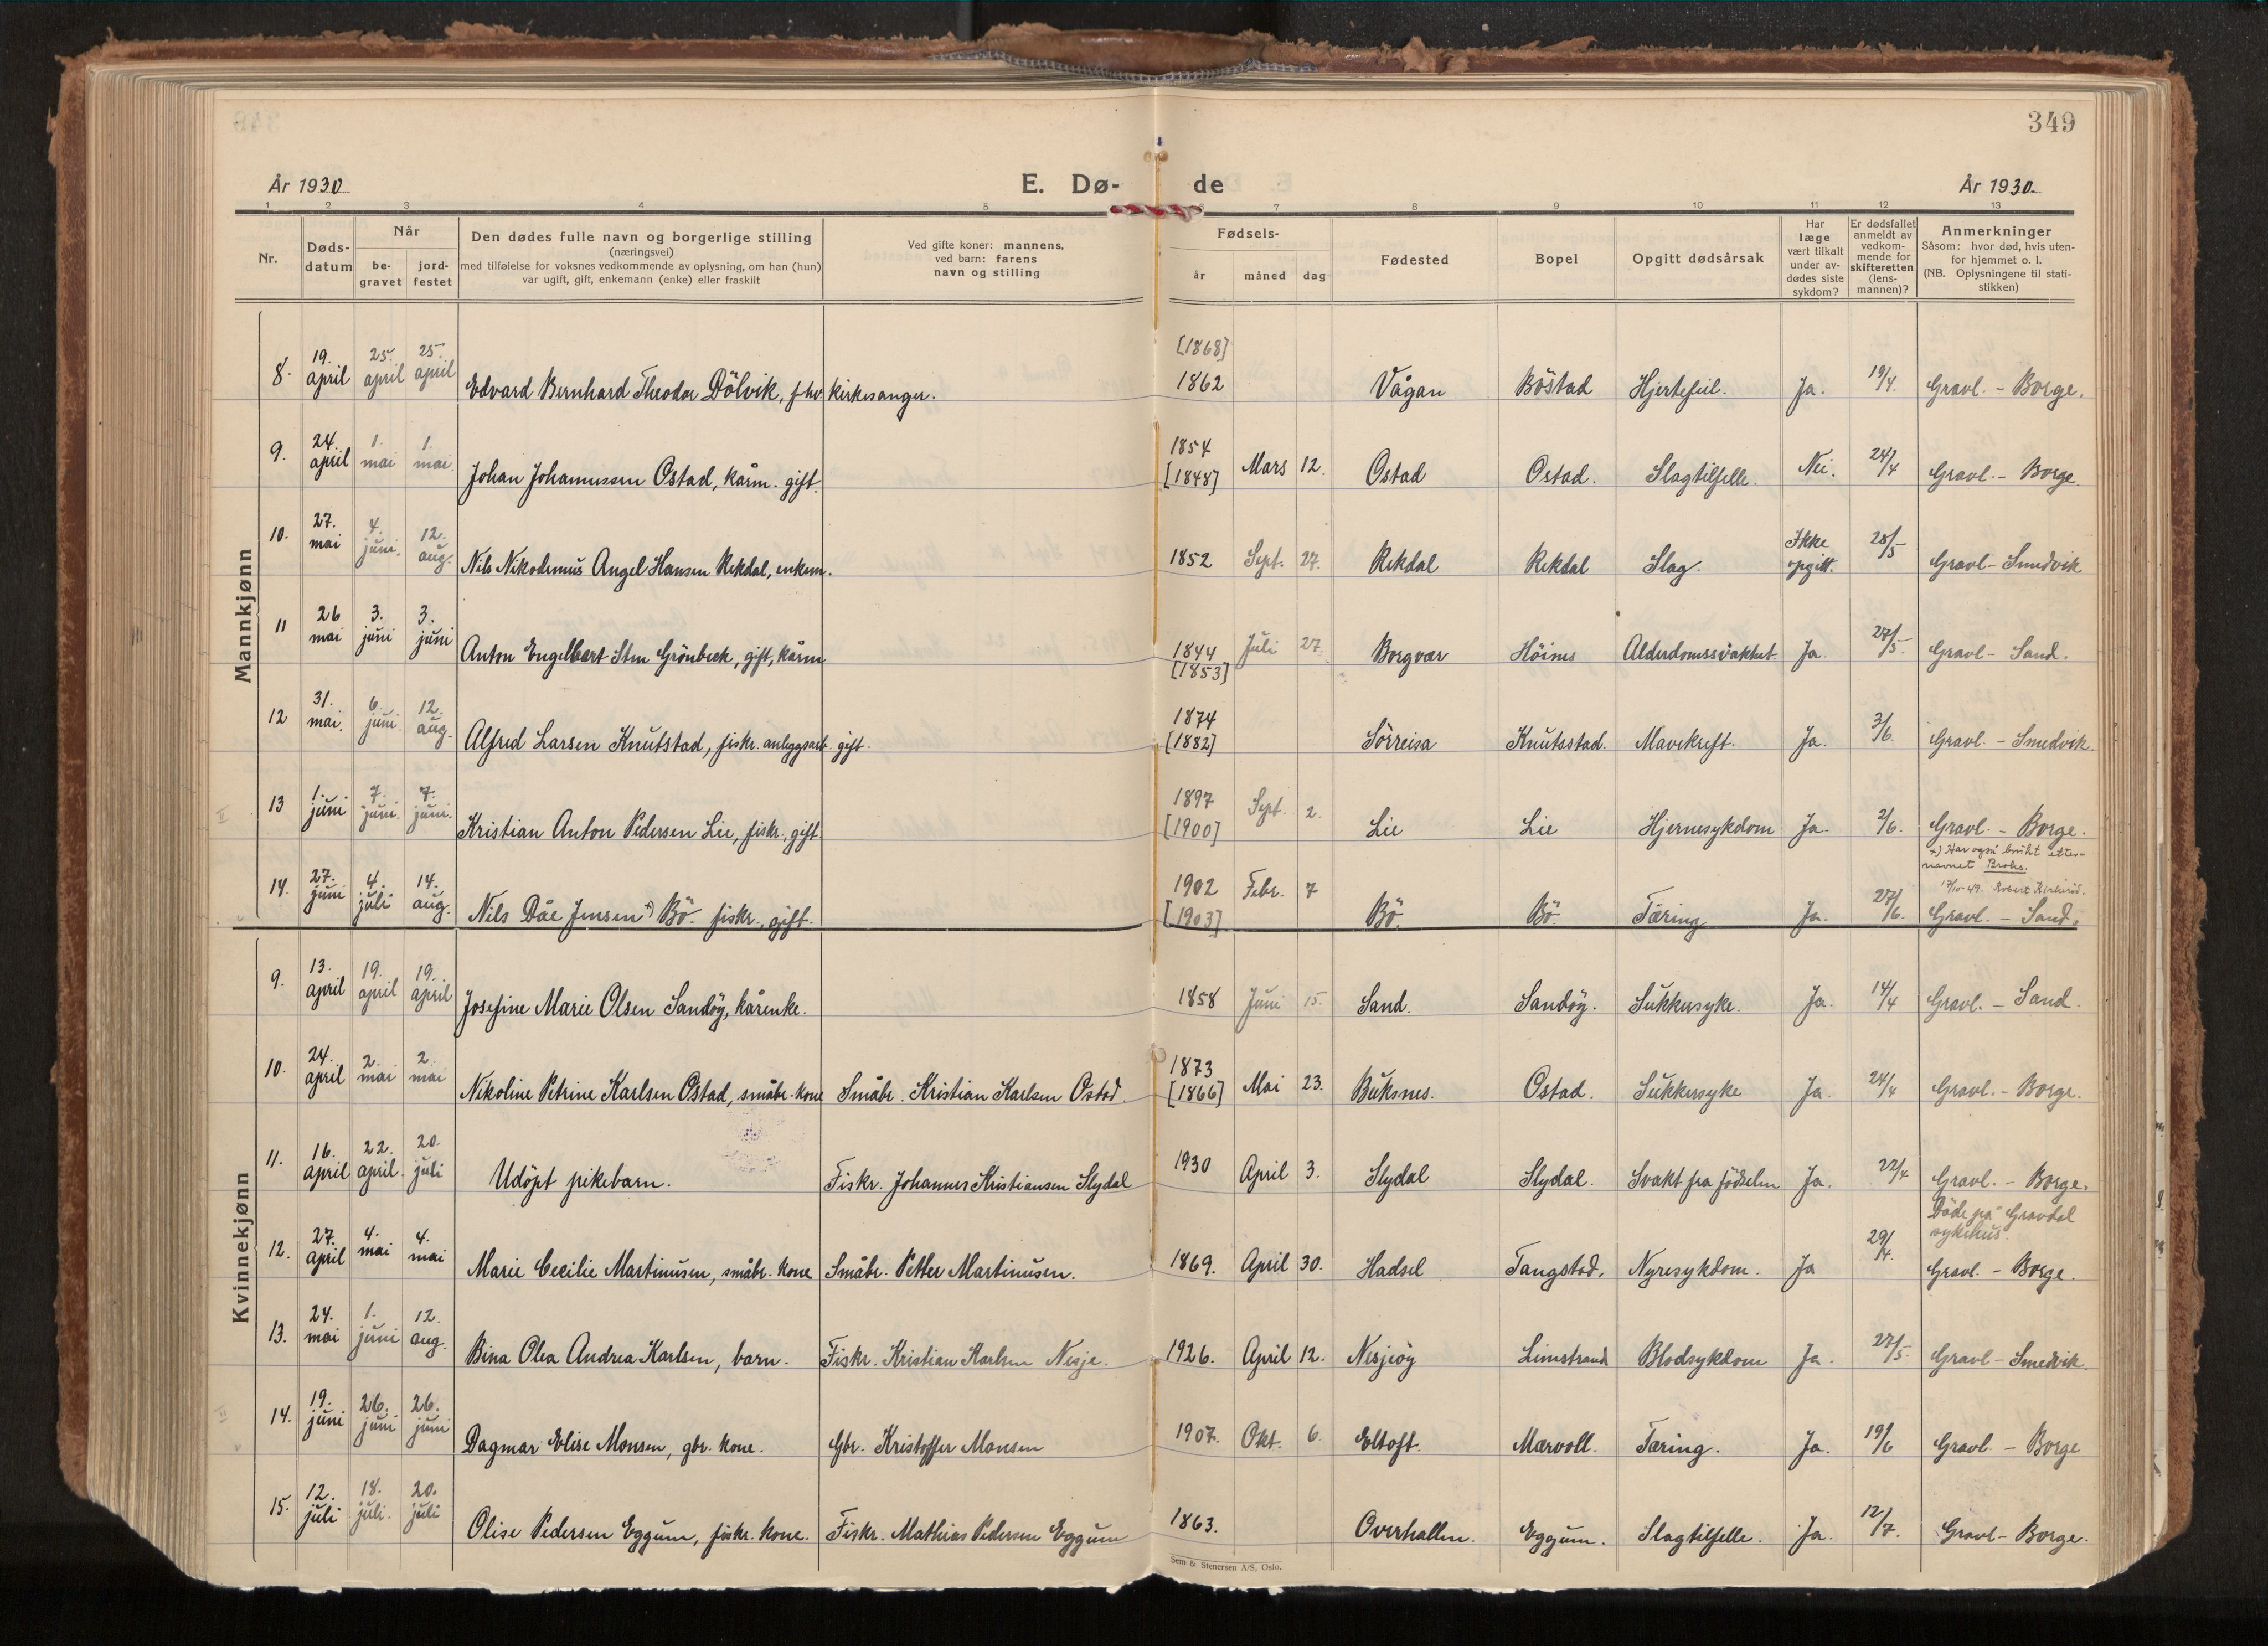 349
År 1930 E. Dø- de År 1930.
1 2 3 4 5 6 7 8 9 10 11 12 13
Nr. Dødsdatum Når begravet jordfestet
Den dødes fulle navn og borgerlige stilling
(næringsvei)
med tilføielse for voksnes vedkommende av oplysning, om han (hun)
var ugift, gift, enkemann (enke) eller fraskilt
Ved gifte koner: mannens,
ved barn: farens
navn og stilling
Fødsels- år måned dag
Fødested Bopel Opgitt dødsårsak
Har læge vært tilkalt under avdødes siste sykdom?
Er dødsfallet anmeldt av vedkommende for skifteretten (lensmannen)?
Anmerkninger
Såsom: hvor død, hvis utenfor hjemmet o. l.
(NB. Oplysningene til statistikken)
Mannkjønn
8. 19. april 25. april 25. april Edvard Bernhard Theodor Dölvik, fhv. kirkesanger. [1868] 1862 Vågan Böstad Hjertefeil. Ja. 19/4. Gravl. - Borge.
9. 24. april 1. mai 1. mai Johan Johannessen Ostad, kårm. gift. 1854 [1848] Mars 12. Ostad Ostad. Slagtilfelle. Nei. 24/4 Gravl. - Borge.
10. 27. mai 4. juni. 12. aug. Nils Nikodemus Angel Hansen Rekdal, enkem. 1852 Sept. 27. Rekdal Rekdal Slag. Ikke opgitt. 28/5 Gravl - Smedvik
11 26 mai 3. juni 3. juni Anton Engelbert Stm Grönbeck, gift, kårm 1844 [1853] Juli 27. Borgvær Höines Alderdomssvakhet Ja. 27/5. Gravl - Sand.
12 31. mai. 6. juni 12. aug. Alfred Larsen Knutstad, fiskr. anleggsarb. gift. 1874 [1882] Sörreisa Knutsstad. Mavekreft. Ja. 3/6. Gravl. - Smedvik.
13 1. juni 7. juni. 7. juni. Kristian Anton Pedersen Lie, fiskr., gift. 1897 [1900] Sept. 2. Lie Lie Hjernesykdom Ja. 2/6. Gravl. - Borge.
+) Har også brukt etternavnet Broks.
17/10-49. Robert Kirkeröd.
14. 27. juni 4. juli 14. aug. Nils Dåe Jensen +) Bö. fiskr., gift. 1902 [1903] Febr. 7 Bö. Bö. Tæring Ja. 27/6. Gravl. - Sand.
Kvinnekjønn
9. 13. april 19. april 19. april Josefine Marie Olsen Sandöy, kårenke. 1858 Juni 15. Sand. Sandöy. Sukkersyke. Ja. 14/4 Gravl. - Sand.
10. 24. april 2. mai 2. mai Nikoline Petrine Karlsen Ostad, småbr. kone Småbr. Kristian Karlsen Ostad 1873 [1866] Mai 23. Buksnes. Ostad. Sukkersyke Ja. 24/4 Gravl. - Borge.
11. 16. april 22. april. 20. juli Udöpt pikebarn. Fiskr. Johannes Kristiansen Slydal 1930 April 3. Slydal Slydal. Svakt fra födselen Ja. 22/4 Gravl. - Borge.
Döde på Gravdal sykehus.
12. 27. april 4. mai 4. mai Marie Cecilie Martinusen, småbr. kone Småbr. Petter Martinusen. 1869. April 30. Hadsel Tangstad. Nyresykdom. Ja 29/4. Gravl. - Borge.
13. 24. mai 1. juni 12. aug. Bina Olea Andrea Karlsen, barn. Fiskr. Kristian Karlsen Nesje. 1926. April 12. Nesjeöy Limstrand Blodsykdom Ja. 27/5. Gravl - Smedvik.
14. 19. juni 26. juni 26. juni Dagmar Elise Monsen, gbr. kone. Gbr. Kristoffer Monsen 1907. Okt. 6. Eltoft. Mærvoll. Tæring. Ja. 19/6 Gravl. - Borge
15. 12. juli 18. juli. 20. juli Olise Pedersen Eggum, fiskr. kone. Fiskr. Mathias Pedersen Eggum 1863. Overhallen. Eggum. Slagtilfelle. Ja. 12/7. Gravl - Borge.
Sem & Stenersen A/S, Oslo.